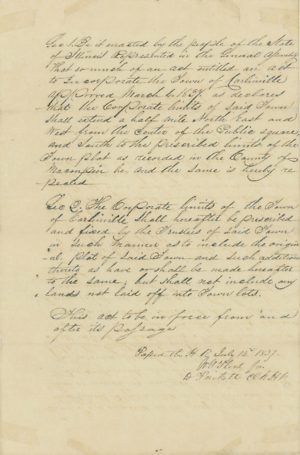 Sec 1. Be it enacted by the people of the State
of Illinois Represented in the General Assembly
That so much of an act entitled an act
to Incorporate the Town of Carlinville
approved March 6, 1837, as declares
that the Corporate limits of Said Town
Shall extend a half mile North East and
West from the Centre of the Public square
and South to the prescribed limits of the
Town plat as recorded in the County of
Macoupin be and the same is hereby re
pealed
Sec 2. The Corporate limits of the Town
of Carlinville Shall hereafter be prescribed
and fixed by the Trustees of Said Town
in Such Manner as to include the origin
al plot of Said Town and such additions
thereto as have or shall be made hereafter
to the same, but shall not include any
lands not laid off into Town lots.
This act to be in force from and
after its passage
Passed the H R July 12th 1837.